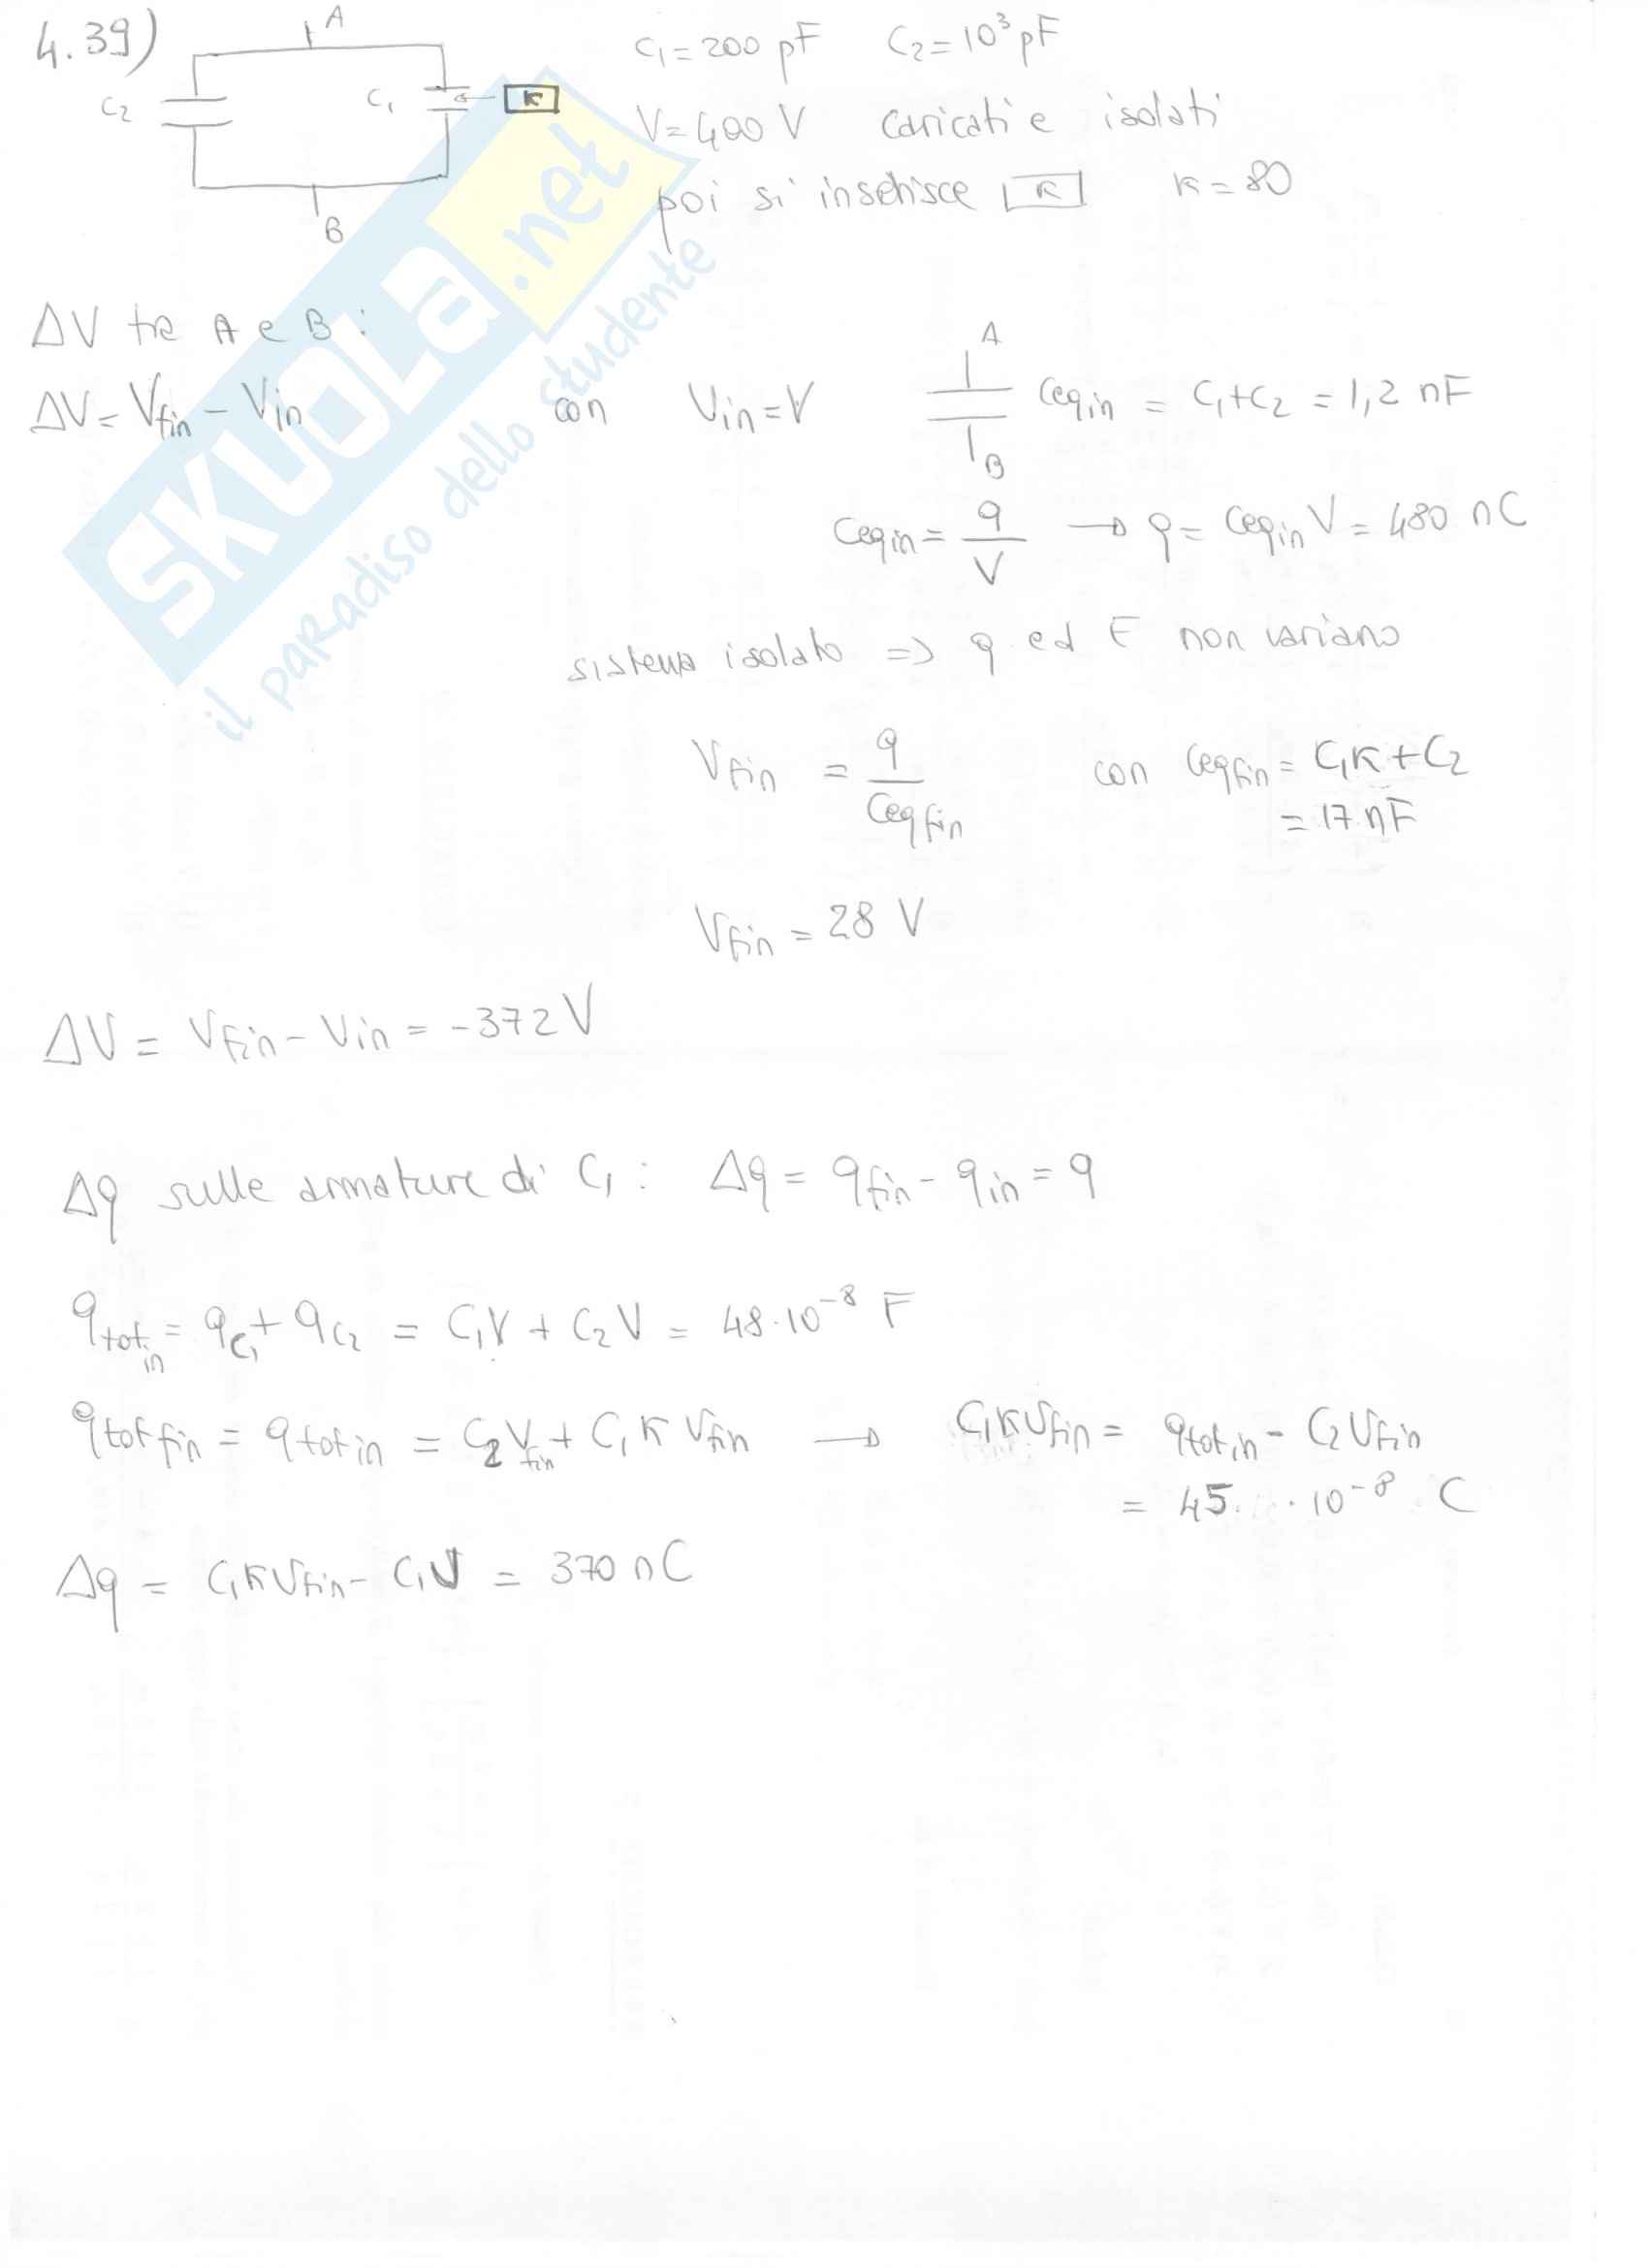 4.39)
A
C₂
C₁
K
B
C₁ = 200 pF C₂ = 10³ pF
V = 400 V caricati e isolati
poi si inserisce K κ = 80
SKUOLA.net
il paradiso dello studente
ΔV tra A e B :
ΔV = Vfin - Vin con Vin = V
A
B
Ceqin = C₁+C₂ = 1,2 nF
Ceqin = q/V → q = Ceqin V = 480 nC
sistema isolato => q ed E non variano
Vfin = q/Ceqfin con Ceqfin = C₁κ + C₂
= 17 nF
Vfin = 28 V
ΔV = Vfin - Vin = -372 V
Δq sulle armature di C₁ : Δq = qfin - qin = q
qtot in = qC₁ + qC₂ = C₁V + C₂V = 48·10⁻⁸ F
qtot fin = qtot in = C₂Vfin + C₁κ Vfin → C₁κVfin = qtot in - C₂Vfin
= 45 · 10⁻⁸ C
Δq = C₁κVfin - C₁V = 370 nC